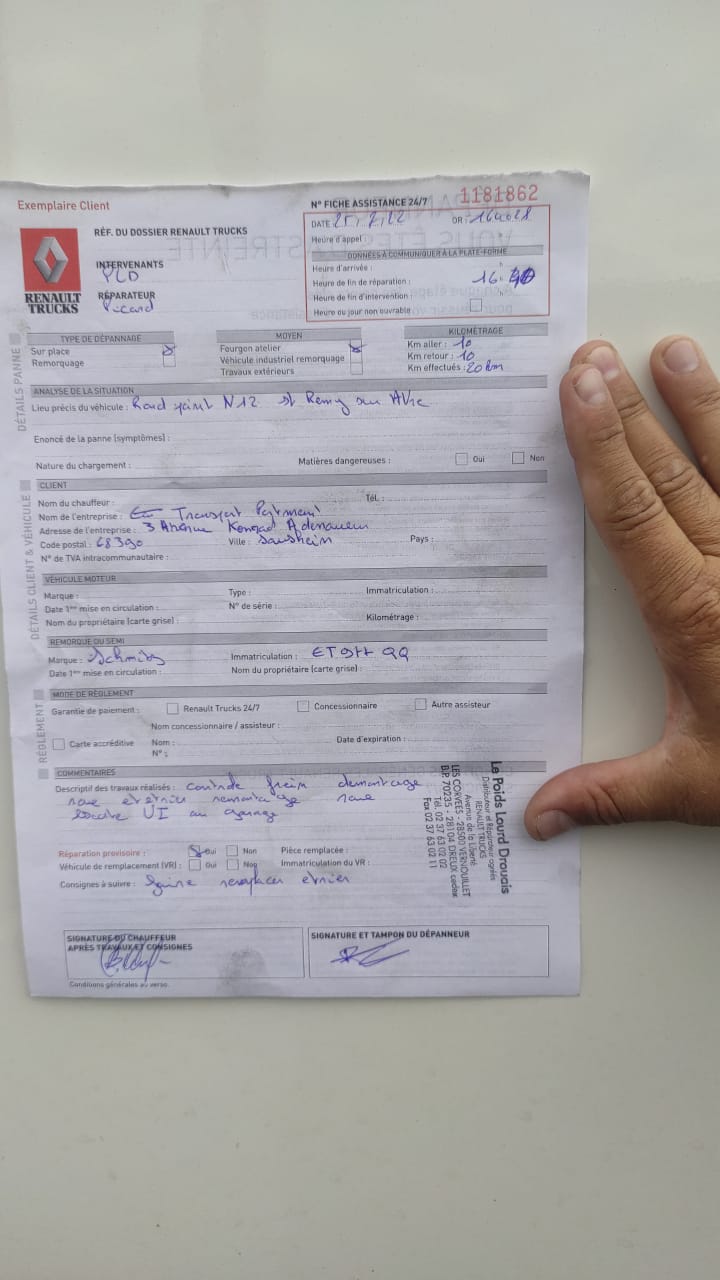 Exemplaire Client
N° FICHE ASSISTANCE 24/7 1181862
RENAULT TRUCKS
RÉF. DU DOSSIER RENAULT TRUCKS
INTERVENANTS
PLD
RÉPARATEUR
Picard
DATE : 25/7/22 OR :
Heure d'appel :
DONNÉES À COMMUNIQUER À LA PLATE-FORME
Heure d'arrivée :
Heure de fin de réparation : 16
Heure de fin d'intervention :
Heure ou jour non ouvrable :
DÉTAILS PANNE
TYPE DE DÉPANNAGE
Sur place
Remorquage
MOYEN
Fourgon atelier
Véhicule industriel remorquage
Travaux extérieurs
KILOMÉTRAGE
Km aller : 10
Km retour : 10
Km effectués : 20 km
ANALYSE DE LA SITUATION
Lieu précis du véhicule : Rond point N12 st Remy sur Avre
Enoncé de la panne (symptômes) :
Nature du chargement : Matières dangereuses : Oui Non
DÉTAILS CLIENT & VÉHICULE
CLIENT
Nom du chauffeur : Tél. :
Nom de l'entreprise : Transport
Adresse de l'entreprise : 3 Avenue Konrad Adenaueur
Code postal : 68390 Ville : Sausheim Pays :
N° de TVA intracommunautaire :
VÉHICULE MOTEUR
Marque : Type : Immatriculation :
Date 1ère mise en circulation : N° de série :
Nom du propriétaire (carte grise) : Kilométrage :
REMORQUE OU SEMI
Marque : Schmitz Immatriculation : QQ
Date 1ère mise en circulation : Nom du propriétaire (carte grise) :
RÈGLEMENT
MODE DE RÈGLEMENT
Garantie de paiement : Renault Trucks 24/7 Concessionnaire Autre assisteur
Nom concessionnaire / assisteur :
Carte accréditive Nom : Date d'expiration :
N° :
COMMENTAIRES
Descriptif des travaux réalisés : controle frein demontage
roue etrier remontage roue
Réparation provisoire : Oui Non Pièce remplacée :
Véhicule de remplacement (VR) : Oui Non Immatriculation du VR :
Consignes à suivre : remplacer etrier
Le Poids Lourd Drouais
Distributeur et Réparateur agréés
RENAULT TRUCKS
Avenue de la Liberté
LES CORVÉES - 28500 VERNOUILLET
B.P. 70235 - 28104 DREUX cedex
Tél. 02 37 63 02 02
Fax 02 37 63 02 11
SIGNATURE DU CHAUFFEUR
APRÈS TRAVAUX ET CONSIGNES
SIGNATURE ET TAMPON DU DÉPANNEUR
Conditions générales au verso.